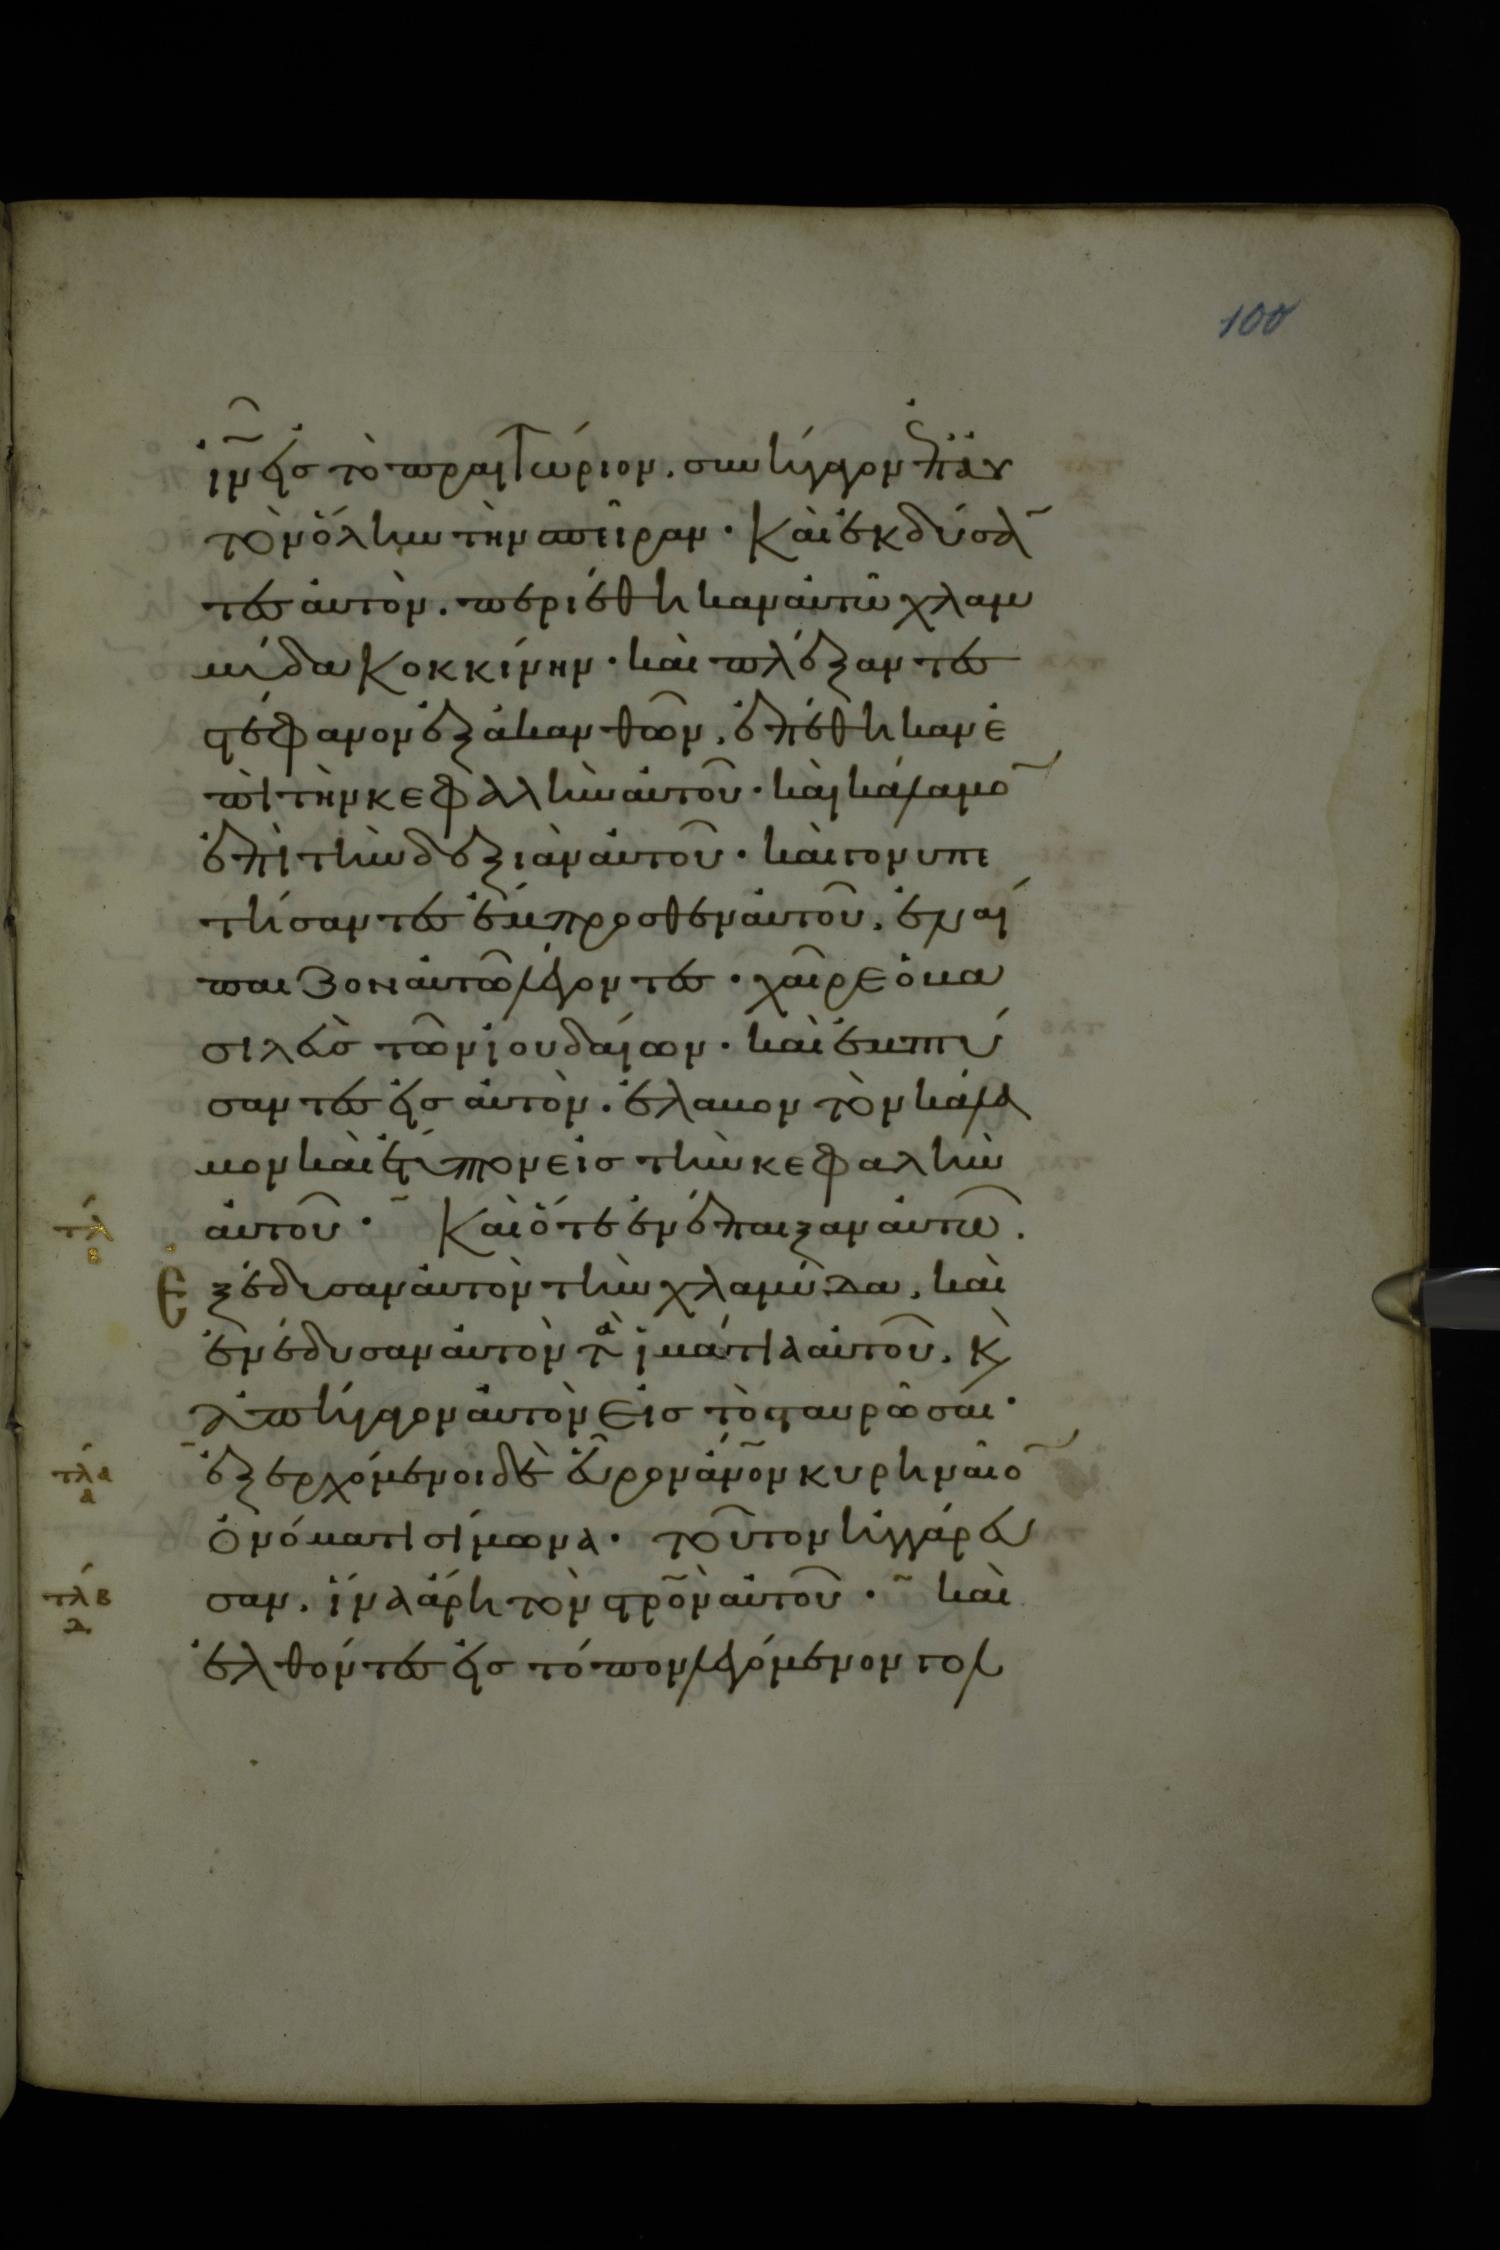 100
ἰν̅ εἰσ τὸ πραιτώριον. συνήγαγον ἐπ᾽ αυ
τὸν ὅλην τὴν σπεῖραν· Καὶ ἐκδύσα̅
τεσ ἀυτὸν. περιέθηκαν ἀυτῶ χλαμ
μύδα κοκκίνην· καὶ πλέξαντεσ
στέφανον ἐξ ἀκανθῶν. ἐπέθηκαν ἐ
πὶ τὴν κεφαλὴν ἀυτοῦ· καὶ κάλαμο̅
ἐπὶ τὴν δεξιὰν ἀυτοῦ· καὶ γονυπε
τήσαντεσ ἔμπροσθεν ἀυτοῦ. ἐνέ
παιζον ἀυτῶ λέγοντεσ· χαῖρε ὁ βα
σιλεὺσ τῶν ἰουδαίων· καὶ ἐμπτύ
σαντεσ εἰσ ἀυτὸν. ἔλαβον τὸν κάλα
μον καὶ ἔτυπτον εἰσ τὴν κεφαλὴν
τλ β ἀυτοῦ· Καὶ ὅτε ἐνέπαιξαν ἀυτῶ.
Ε ξέδυσαν ἀυτὸν τὴν χλαμύδα. καὶ
ἐνέδυσαν ἀυτὸν τὰ ἱμάτια ἀυτοῦ. κ̀
ἀπήγαγον ἀυτὸν εἰσ τὸ σταυρῶσαι·
τλα α ἐξερχόμενοι δὲ εὗρον ἄν̅ον κυρηναῖο̅
ὀνόματι σίμωνα· τοῦτον ἠγγάρευ
τλβ α σαν. ἵνα ἄρη τὸν στρ̅ὸν ἀυτοῦ· καὶ
ἐλθόντεσ εἰσ τόπον λεγόμενον γολ